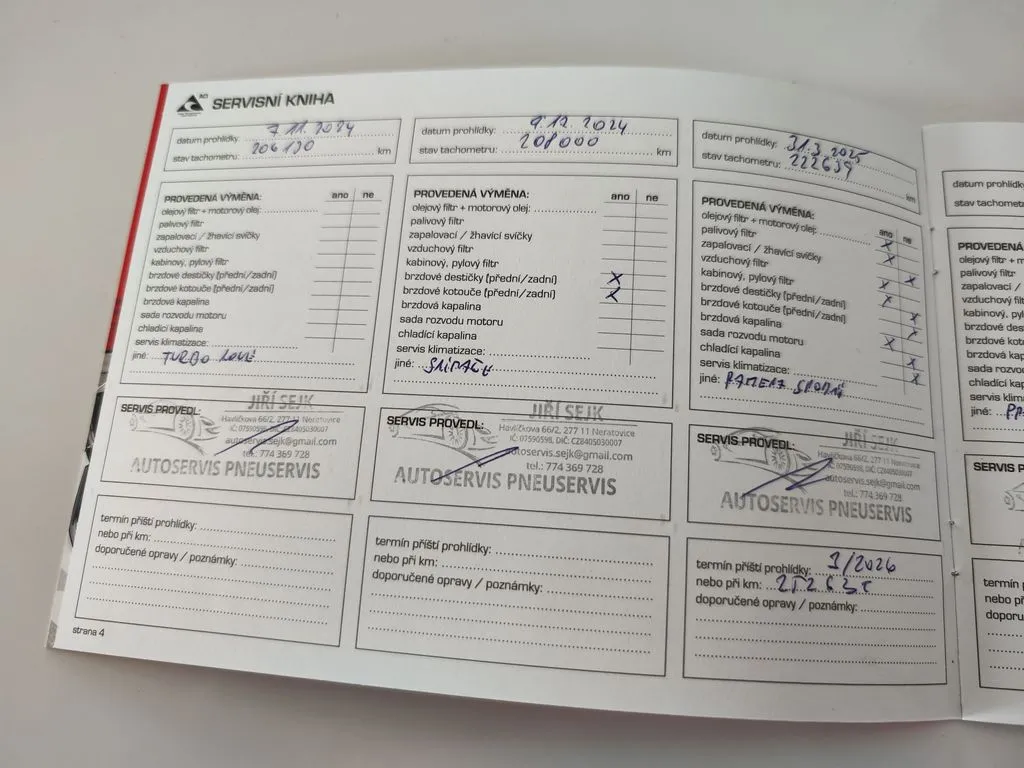 ACI SERVISNÍ KNIHA
datum prohlídky: 7.11.2024
stav tachometru: 206190 km
PROVEDENÁ VÝMĚNA: ano ne
olejový filtr + motorový olej:
palivový filtr
zapalovací / žhavící svíčky
vzduchový filtr
kabinový, pylový filtr
brzdové destičky (přední/zadní)
brzdové kotouče (přední/zadní)
brzdová kapalina
sada rozvodu motoru
chladící kapalina
servis klimatizace:
jiné: TURBO NOVÉ
SERVIS PROVEDL:
JIŘÍ SEJK
Havlíčkova 66/2, 277 11 Neratovice
IČ: 07590598, DIČ: CZ8405030007
autoservis.sejk@gmail.com
tel.: 774 369 728
AUTOSERVIS PNEUSERVIS
termín příští prohlídky:
nebo při km:
doporučené opravy / poznámky:
strana 4
datum prohlídky: 9.12.2024
stav tachometru: 208000 km
PROVEDENÁ VÝMĚNA: ano ne
olejový filtr + motorový olej:
palivový filtr
zapalovací / žhavící svíčky
vzduchový filtr
kabinový, pylový filtr
brzdové destičky (přední/zadní) X
brzdové kotouče (přední/zadní) X
brzdová kapalina
sada rozvodu motoru
chladící kapalina
servis klimatizace:
jiné: SNÍMAČE
SERVIS PROVEDL:
JIŘÍ SEJK
Havlíčkova 66/2, 277 11 Neratovice
IČ: 07590598, DIČ: CZ8405030007
autoservis.sejk@gmail.com
tel.: 774 369 728
AUTOSERVIS PNEUSERVIS
termín příští prohlídky:
nebo při km:
doporučené opravy / poznámky:
datum prohlídky: 31.3.2025
stav tachometru: 222639 km
PROVEDENÁ VÝMĚNA: ano ne
olejový filtr + motorový olej: X
palivový filtr X
zapalovací / žhavící svíčky X
vzduchový filtr X
kabinový, pylový filtr X
brzdové destičky (přední/zadní) X
brzdové kotouče (přední/zadní) X
brzdová kapalina X
sada rozvodu motoru X
chladící kapalina X
servis klimatizace:
jiné: RAMENA SPODNÍ
SERVIS PROVEDL:
JIŘÍ SEJK
Havlíčkova 66/2, 277 11 Neratovice
IČ: 07590598, DIČ: CZ8405030007
autoservis.sejk@gmail.com
tel.: 774 369 728
AUTOSERVIS PNEUSERVIS
termín příští prohlídky: 3/2026
nebo při km:
doporučené opravy / poznámky:
datum prohlídk
stav tachomet
PROVEDENÁ
olejový filtr + m
palivový filtr
zapalovací /
vzduchový filt
kabinový, pyl
brzdové des
brzdové kot
brzdová kap
sada rozvod
chladící kap
servis klim
jiné:
SERVIS P
termín p
nebo př
doporu